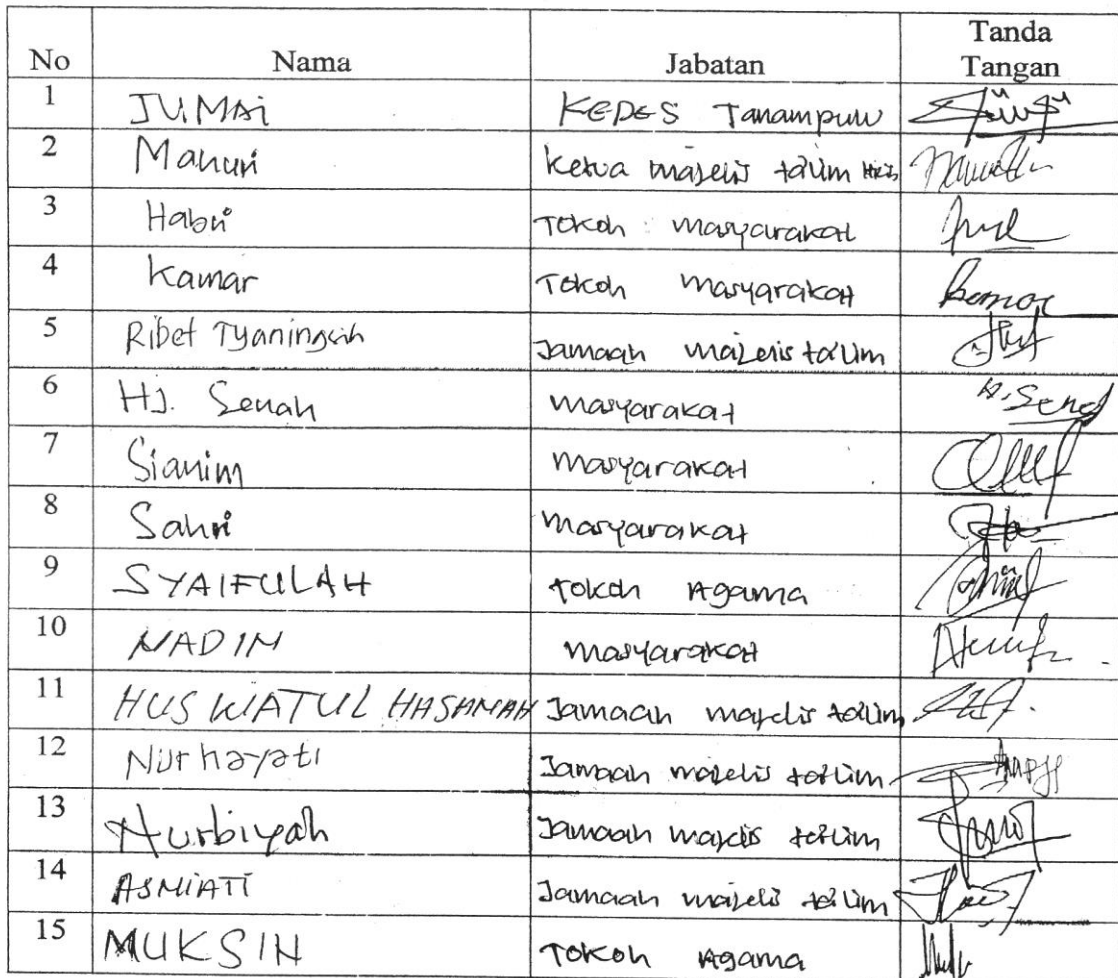 No Nama Jabatan Tanda Tangan
1 JUMAi KEDES Tanampuw
2 Mahuri Ketua majelis ta'lim
3 Habri Tokoh masyarakat
4 Kamar Tokoh masyarakat Kamar
5 Ribet Tyaningsih Jamaah majelis ta'lim
6 HJ. Senah masyarakat H. Sena
7 Sianim masyarakat
8 Sahri masyarakat
9 SYAIFULAH tokoh Agama
10 NADIM masyarakat
11 HUSWATUL HASANAH Jamaah majelis ta'lim
12 Nurhayati Jamaah majelis ta'lim
13 Nurbiyah Jamaah majelis ta'lim
14 ASMIATI Jamaah majelis ta'lim
15 MUKSIN TOKOH Agama